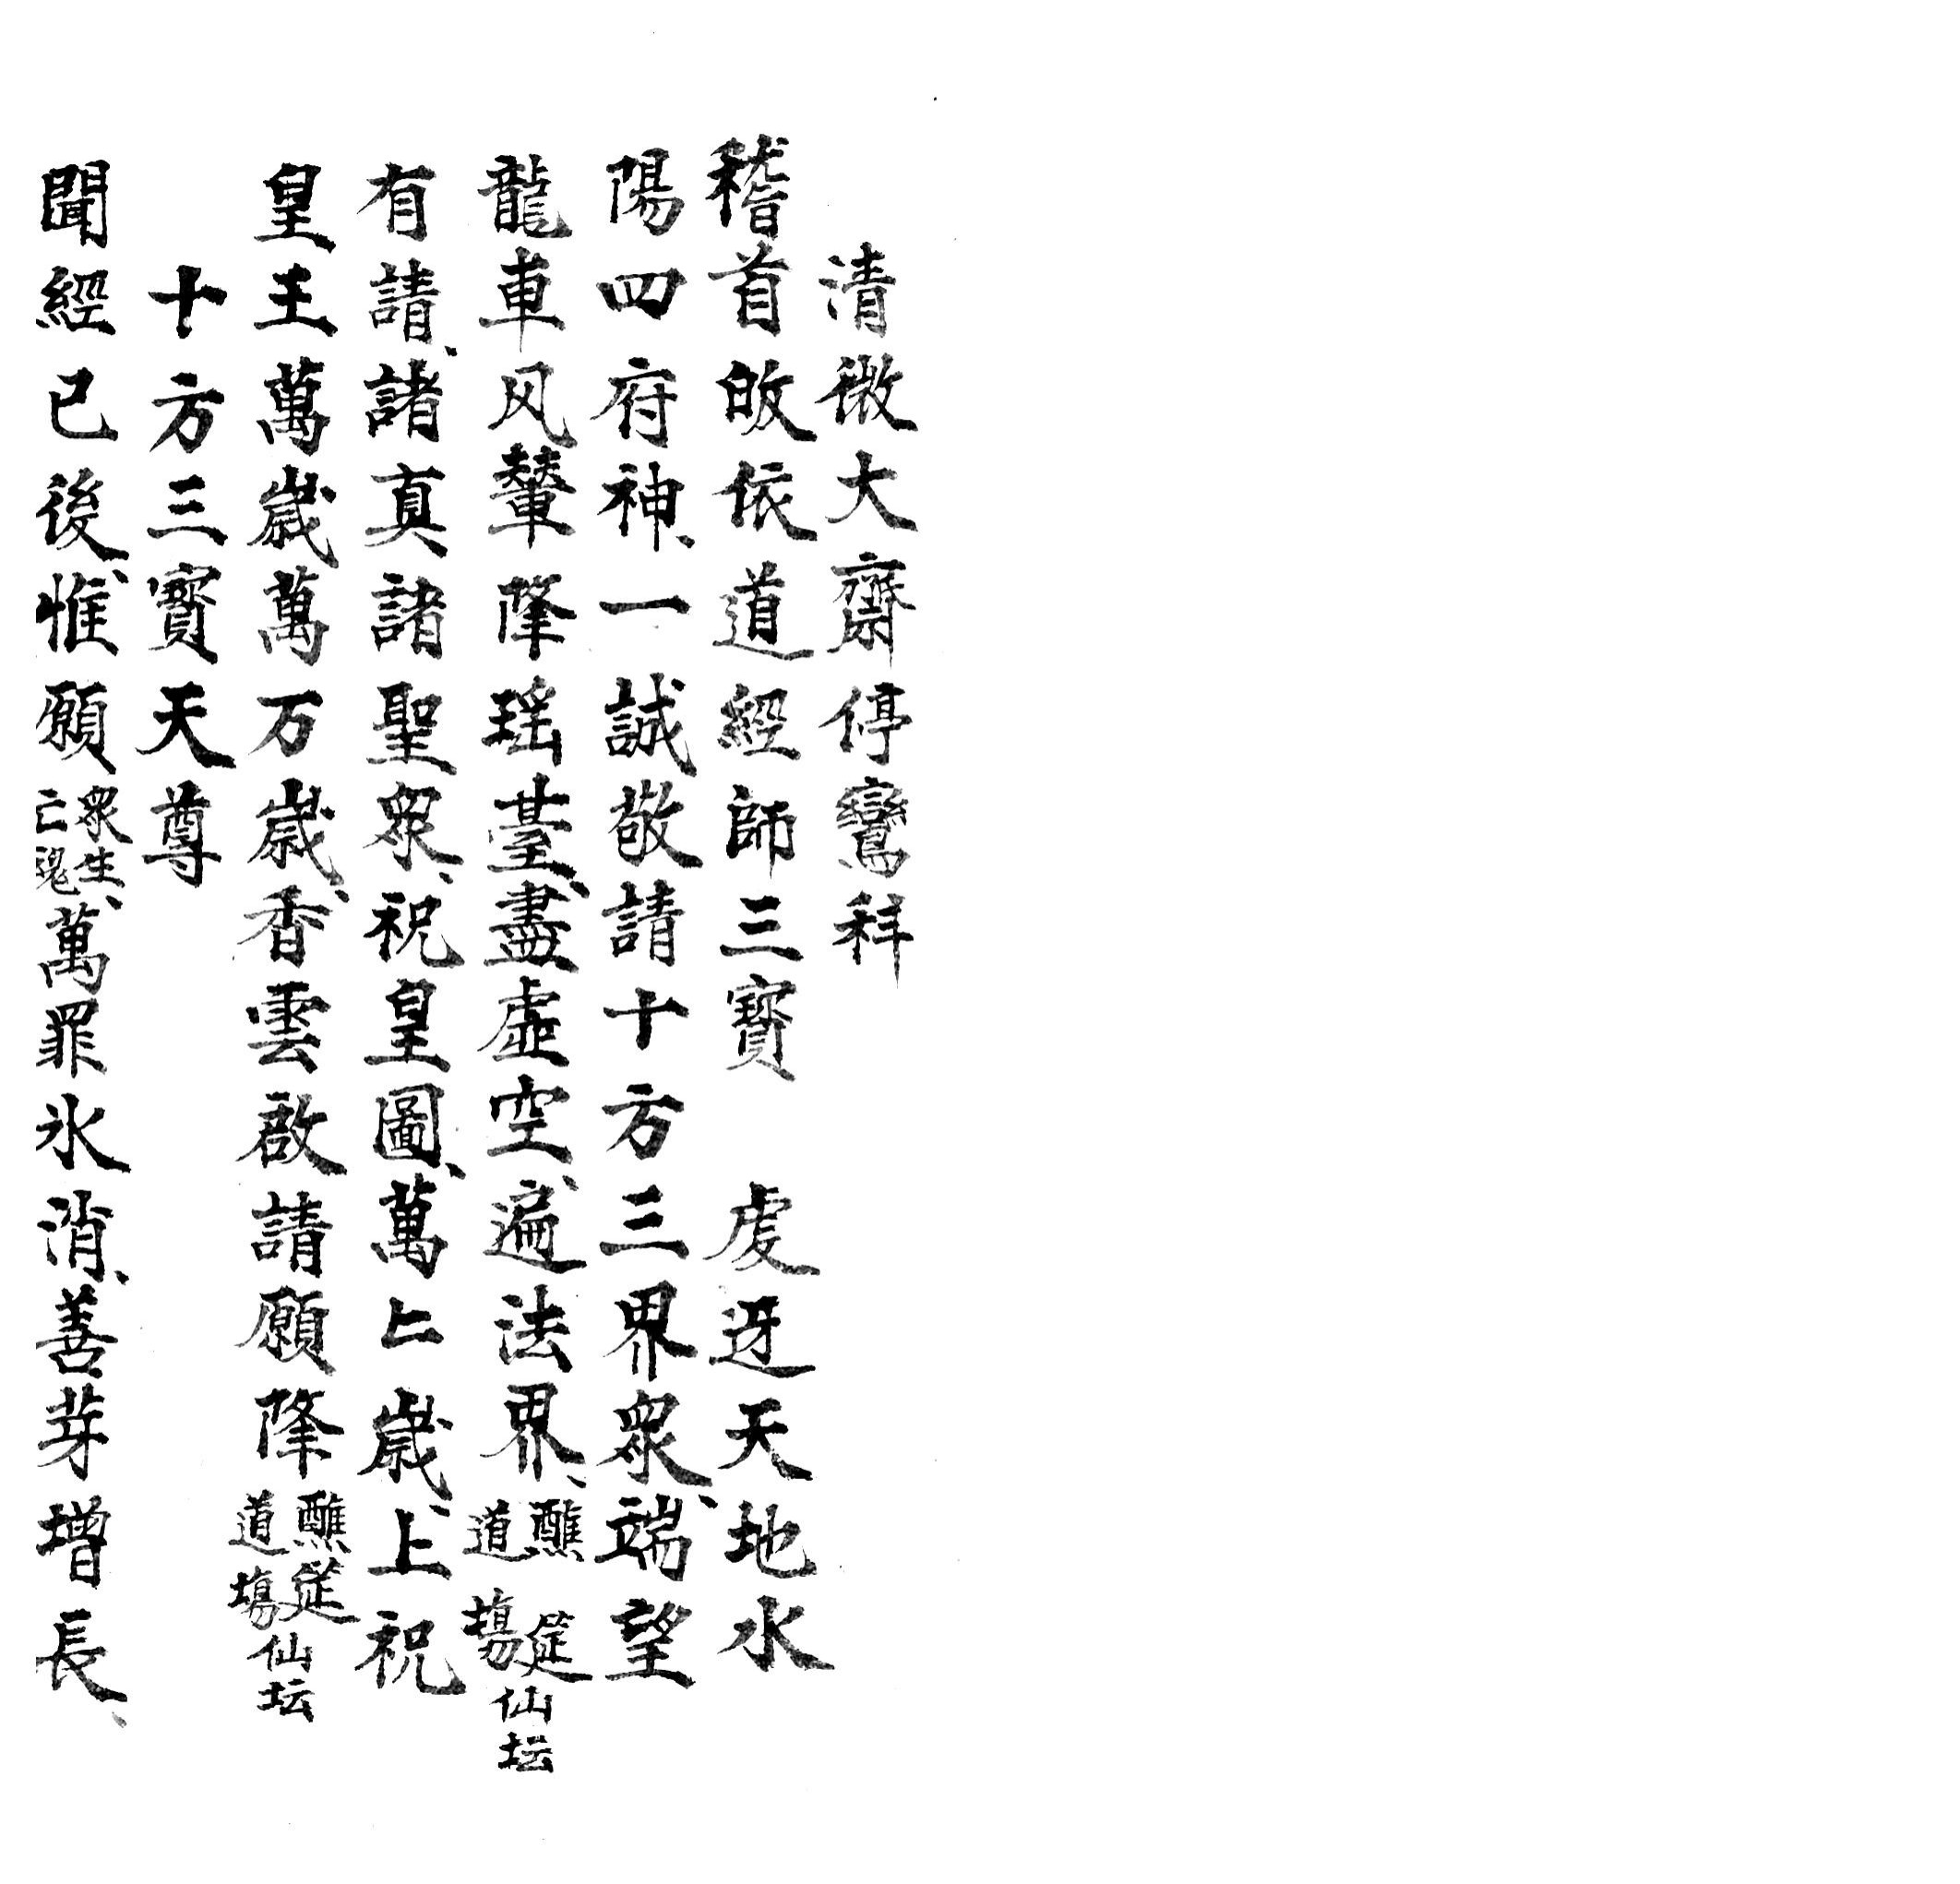 清微大齋停鸞科
稽首皈依道經師三寳　虔迓天地水
陽四府神、一誠敬請十方三界衆、端望
龍車风輦降瑶臺、盡虛空、遍法界、醮筵道塲仙坛
有請、諸真諸聖衆、祝皇圖、萬〻歲、上祝
皇王萬歲萬万歲、香雲啟請願降醮筵道塲仙坛
十方三寳天尊
聞經已後、惟願衆生、亡魂萬罪氷消、善芽增長、